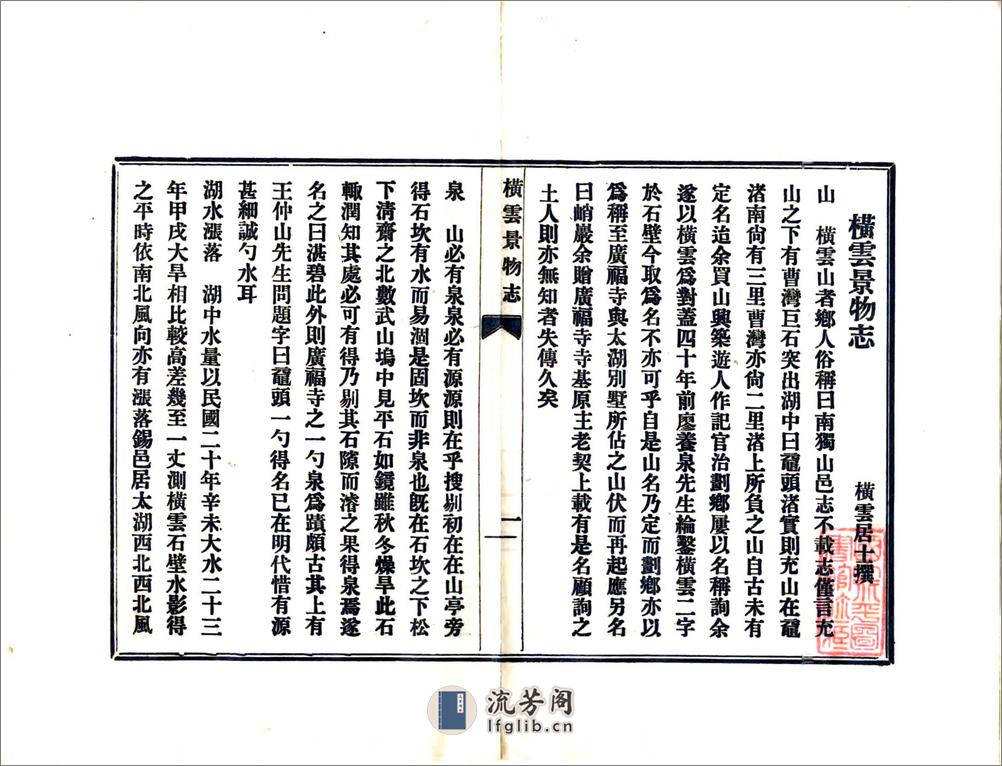 橫雲景物志
橫雲居士撰
山　橫雲山者鄉人俗稱曰南獨山邑志不載志僅言充
山之下有曹灣巨石突出湖中曰黿頭渚實則充山在黿
渚南尙有三里曹灣亦尙二里渚上所負之山自古未有
定名迨余買山興築遊人作記官治劃鄉屢以名稱詢余
遂以橫雲爲對蓋四十年前廖養泉先生綸鑿橫雲二字
於石壁今取爲名不亦可乎自是山名乃定而劃鄉亦以
爲稱至廣福寺與太湖別墅所佔之山伏而再起應另名
曰峭巖余贈廣福寺寺基原主老契上載有是名顧詢之
土人則亦無知者失傳久矣
橫雲景物志
一
泉　山必有泉泉必有源源則在乎搜剔初在在山亭旁
得石坎有水而易涸是固坎而非泉也旣在石坎之下松
下淸齋之北數武山塢中見平石如鏡雖秋冬燥旱此石
輒潤知其處必可有得乃剔其石隙而濬之果得泉焉遂
名之曰湛碧此外則廣福寺之一勺泉爲蹟頗古其上有
王仲山先生問題字曰黿頭一勺得名已在明代惜有源
甚細誠勺水耳
湖水漲落　湖中水量以民國二十年辛未大水二十三
年甲戌大旱相比較高差幾至一丈測橫雲石壁水影得
之平時依南北風向亦有漲落錫邑居太湖西北西北風
流芳阁
lfglib.cn